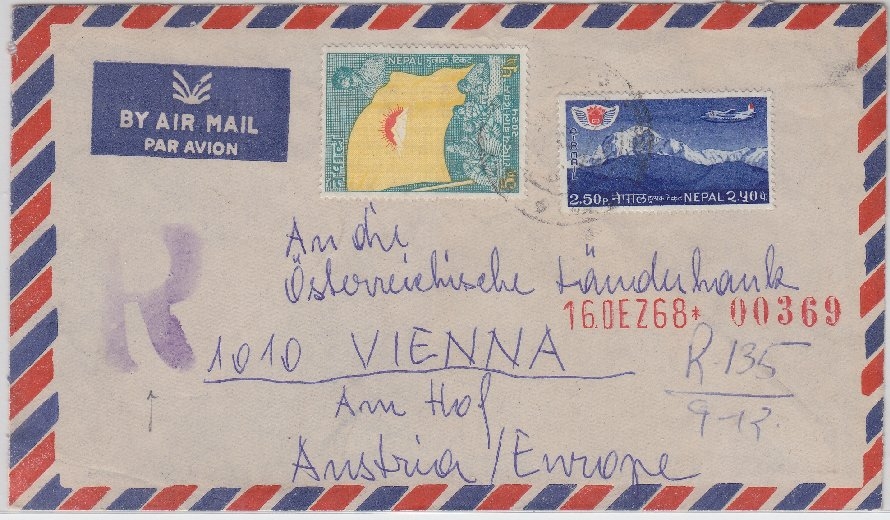 BY AIR MAIL
PAR AVION
NEPAL हुलाक टिकट
2.50 P. नेपाल हुलाक टिकट NEPAL २.५० प.
R
An die
Österreichische Länderbank
16.DEZ68* 00369
1010 VIENNA
R-135
9-12.
Am Hof
Austria/Europe